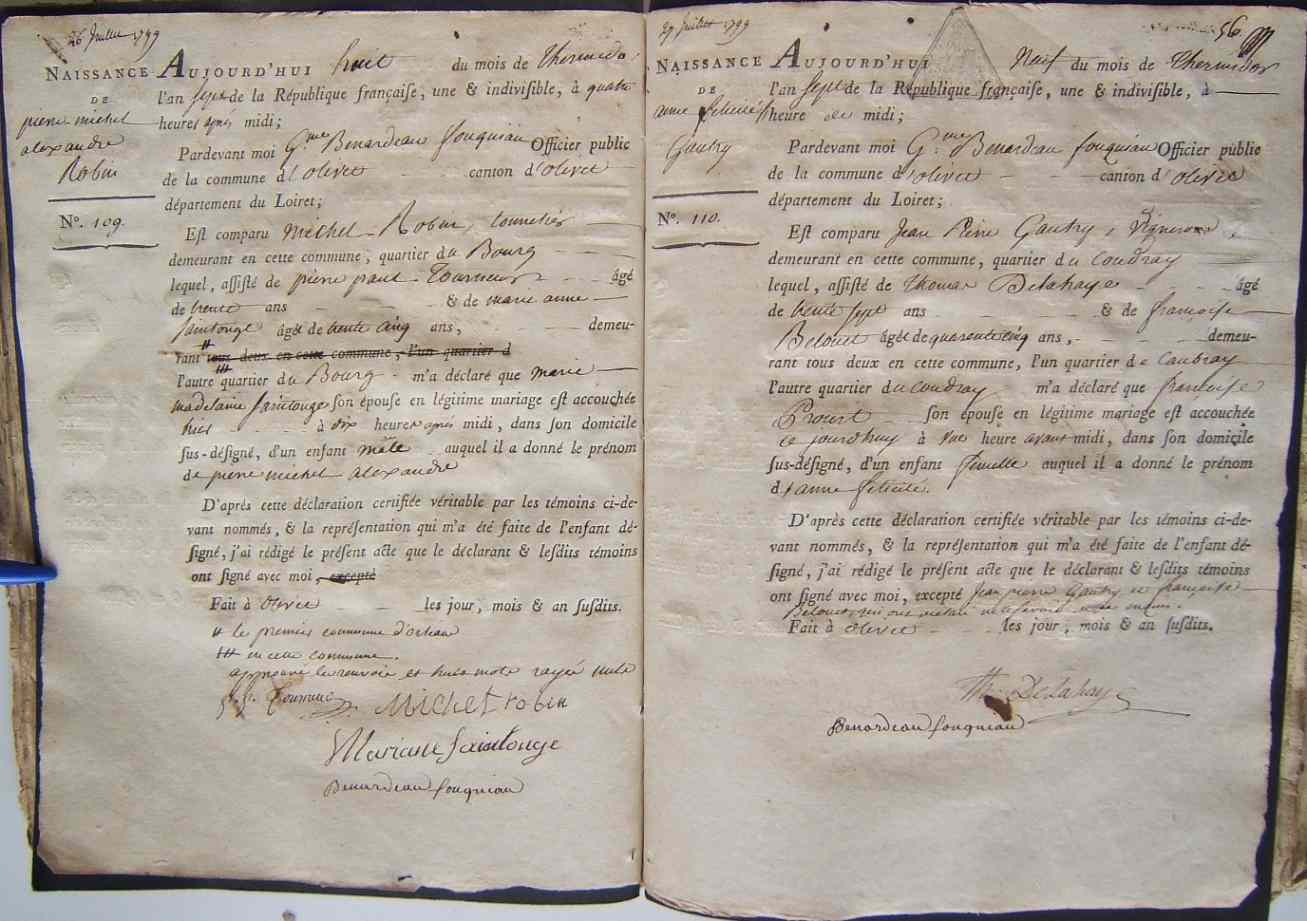 26 Juillet 1799
NAISSANCE
DE
pierre michel
alexandre
Robin
N°. 109.
AUJOURD'HUI huit du mois de thermidor
l'an sept de la République françaiſe, une & indiviſible, à quatre
heures après midi;
Pardevant moi G.me Benardeau fouquiau Officier public
de la commune d'olivet canton d'olivet
département du Loiret;
Eſt comparu Michel Robin, tonnelier
demeurant en cette commune, quartier du Bourg
lequel, aſſiſté de pierre paul Tourneux âgé
de trente ans & de marie anne
ſaintonge âgée de trente cinq ans, demeu-
rant # tous deux en cette commune, l'un quartier d
l'autre quartier du Bourg m'a déclaré que marie
madelaine ſaintonge ſon épouſe en légitime mariage eſt accouchée
hier à dix heures après midi, dans ſon domicile
ſus-déſigné, d'un enfant mâle auquel il a donné le prénom
de pierre michel alexandre
D'après cette déclaration certifiée véritable par les témoins ci-de-
vant nommés, & la repréſentation qui m'a été faite de l'enfant dé-
ſigné, j'ai rédigé le préſent acte que le déclarant & leſdits témoins
ont ſigné avec moi, excepté
Fait à olivet les jour, mois & an ſuſdits.
# le premier commune d'orlean
## en cette commune.
approuvé le renvoie et huit mots rayée nuls
Michel robin
Mariane ſaintonge
Benardeau fouquiau
27 Juillet 1799
56
NAISSANCE
DE
anne felicité
Gautry
N°. 110.
AUJOURD'HUI Neuf du mois de thermidor
l'an ſept de la République françaiſe, une & indiviſible, à
heure de midi;
Pardevant moi G.me Benardeau fouquiau Officier public
de la commune d'olivet canton d'olivet
département du Loiret;
Eſt comparu Jean Pierre Gautry, Vigneron,
demeurant en cette commune, quartier du Coudray
lequel, aſſiſté de Thomas Delahaye âgé
de trente ſept ans & de françoiſe
Belouet âgée de quarente cinq ans, demeu-
rant tous deux en cette commune, l'un quartier de Caubray
l'autre quartier du coudray m'a déclaré que françoiſe
Proust ſon épouſe en légitime mariage eſt accouchée
ce jourdhuy à une heure avant midi, dans ſon domicile
ſus-déſigné, d'un enfant femelle auquel il a donné le prénom
d'anne felicité.
D'après cette déclaration certifiée véritable par les témoins ci-de-
vant nommés, & la repréſentation qui m'a été faite de l'enfant dé-
ſigné, j'ai rédigé le préſent acte que le déclarant & leſdits témoins
ont ſigné avec moi, excepté Jean pierre Gautry et françoiſe
Belouet, qui ont déclaré ne le ſavoir
Fait à olivet les jour, mois & an ſuſdits.
Th. Delahaye
Benardeau fouquiau